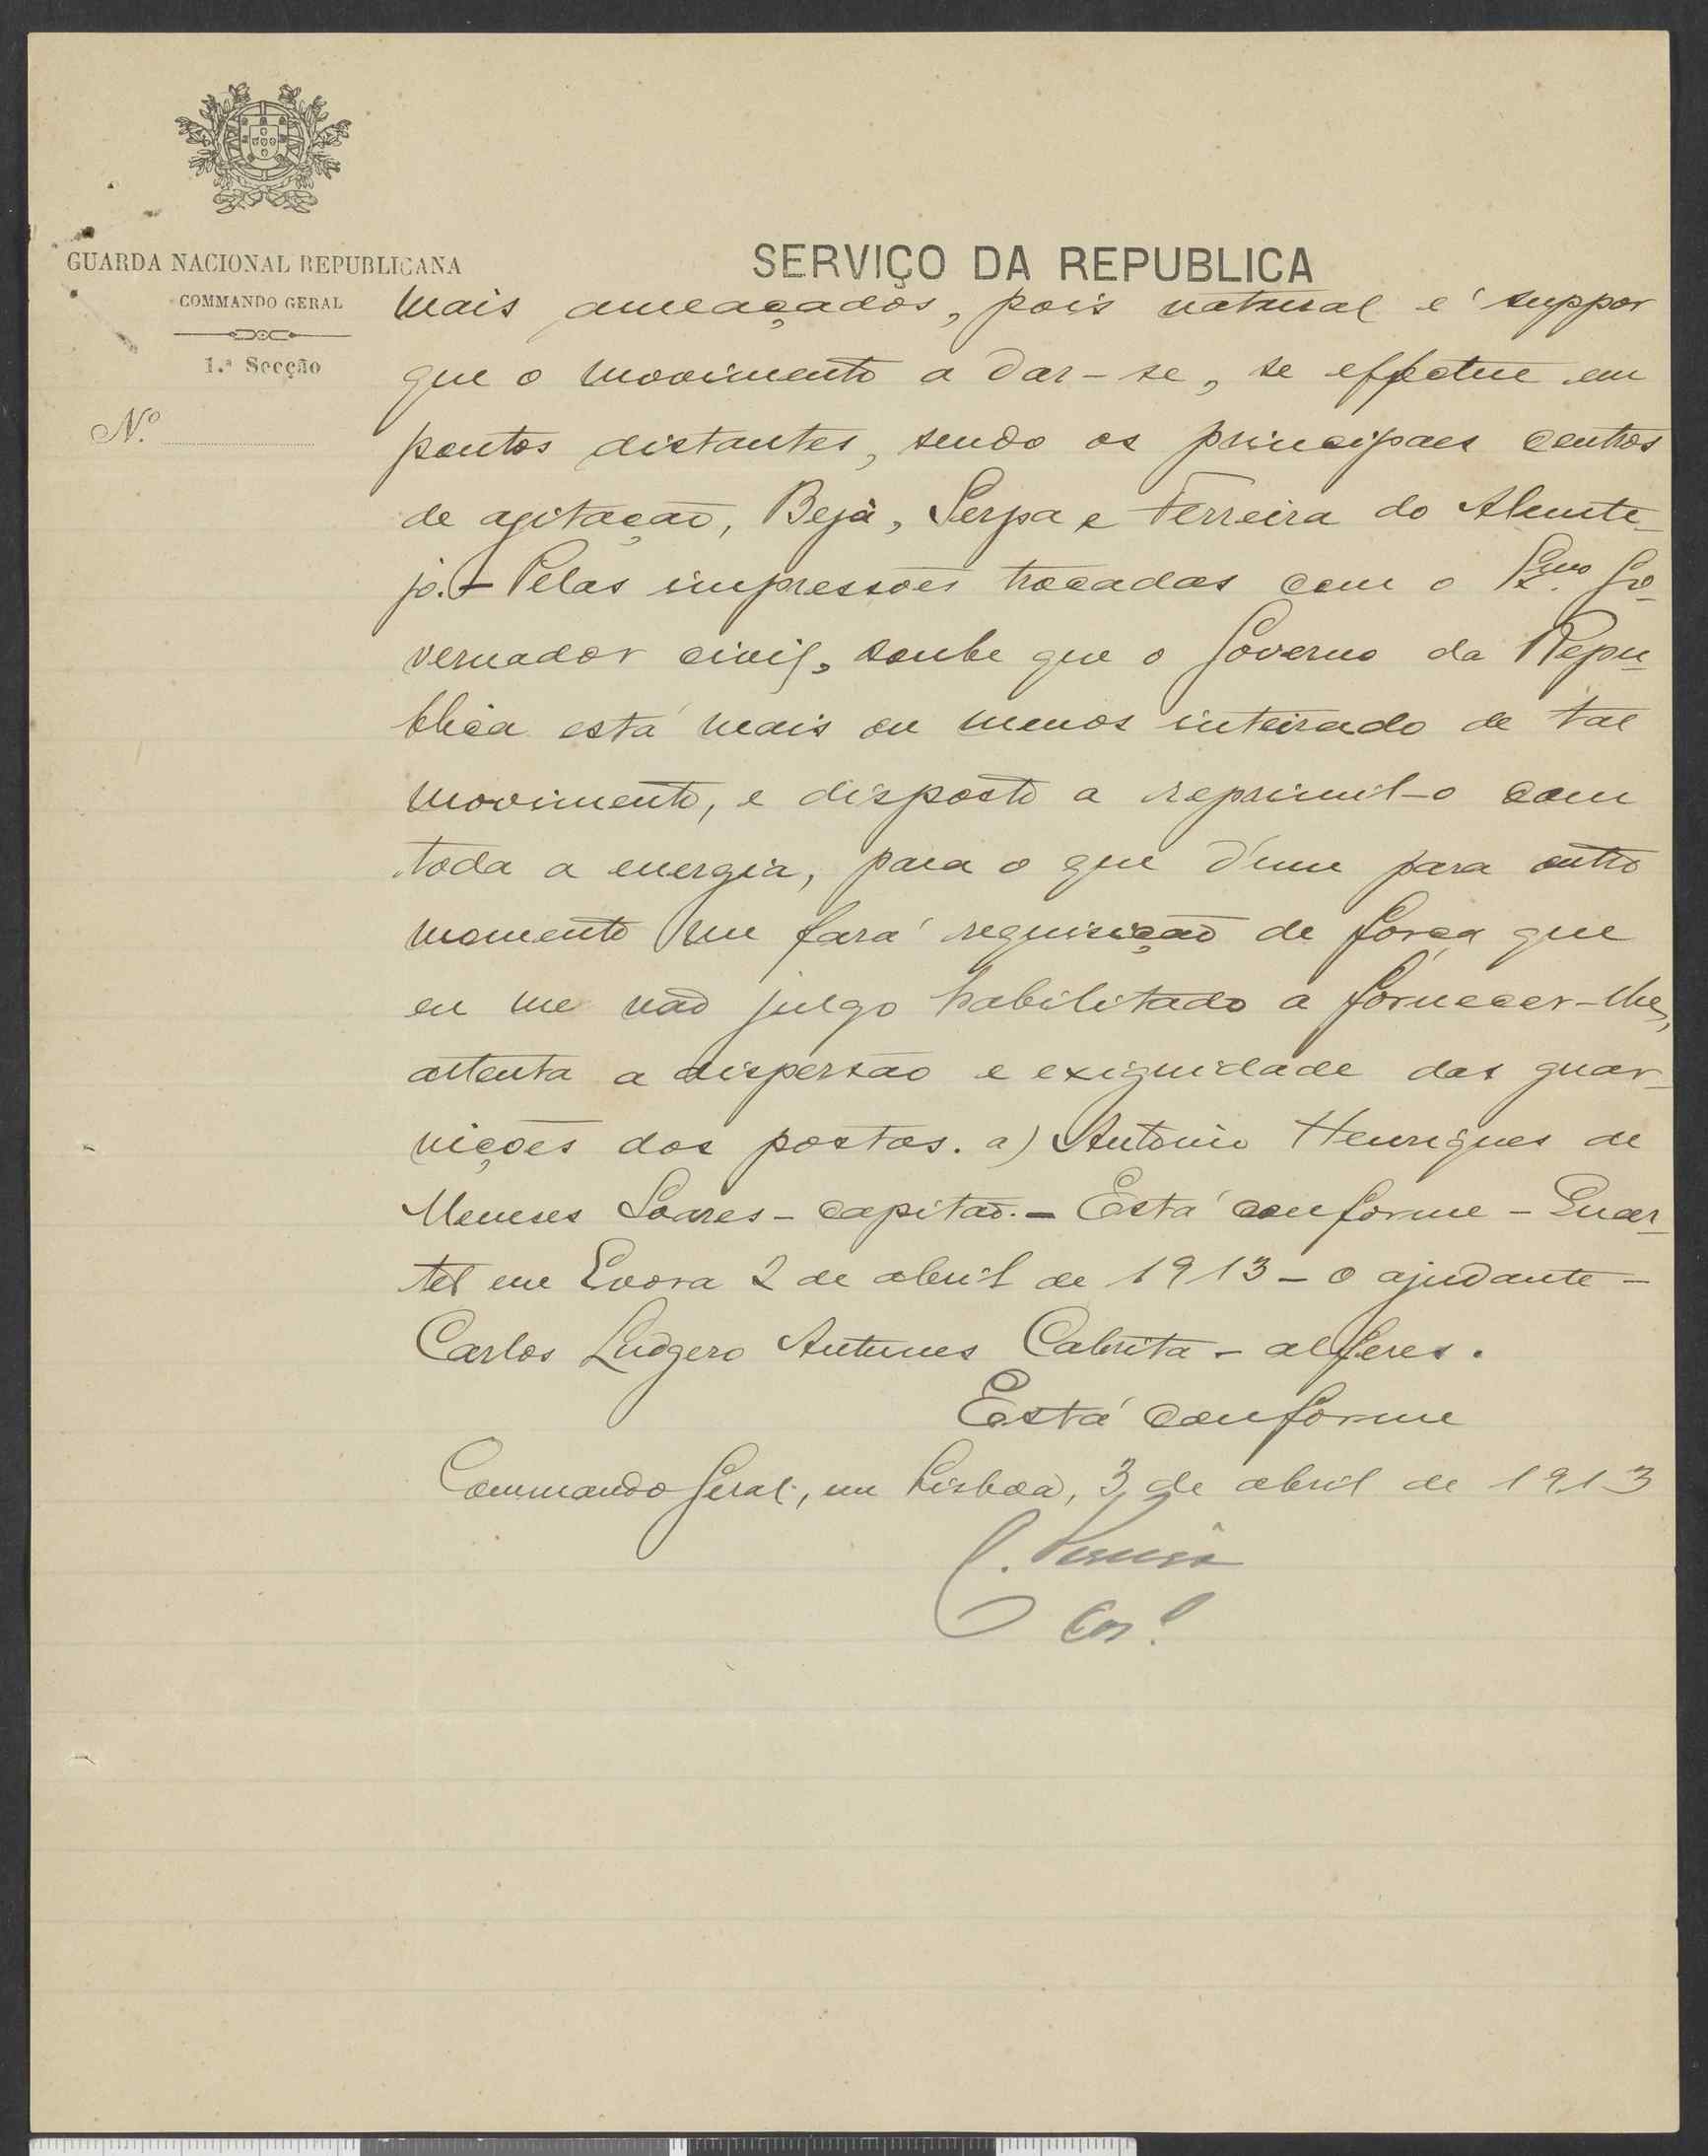 GUARDA NACIONAL REPUBLICANA
COMMANDO GERAL
1.ª Secção
N.º
SERVIÇO DA REPUBLICA
mais ameaçados, pois natural é suppor
que o movimento a dar-se, se effectue em
pontos distantes, sendo os principaes centros
de agitação, Beja, Serpa e Ferreira do Alemte-
jo. - Pelas impressões trocadas com o Ex.mo Go-
vernador civil, soube que o Governo da Repu-
blica está mais ou menos inteirado de tal
movimento, e disposto a reprimil-o com
toda a energia, para o que d'um para outro
momento me fará requisição de força que
eu me não julgo habilitado a fornecer-lhe,
attenta a dispersão e exiguidade das guar-
nições dos postos. a) Antonio Henriques de
Meneses Soares - capitão. - Está conforme - Quar-
tel em Evora 2 de abril de 1913 - O ajudante -
Carlos Ludgero Antunes Cabrita - alferes.
Está conforme
Commando Geral, em Lisboa, 3 de abril de 1913
Cor.l